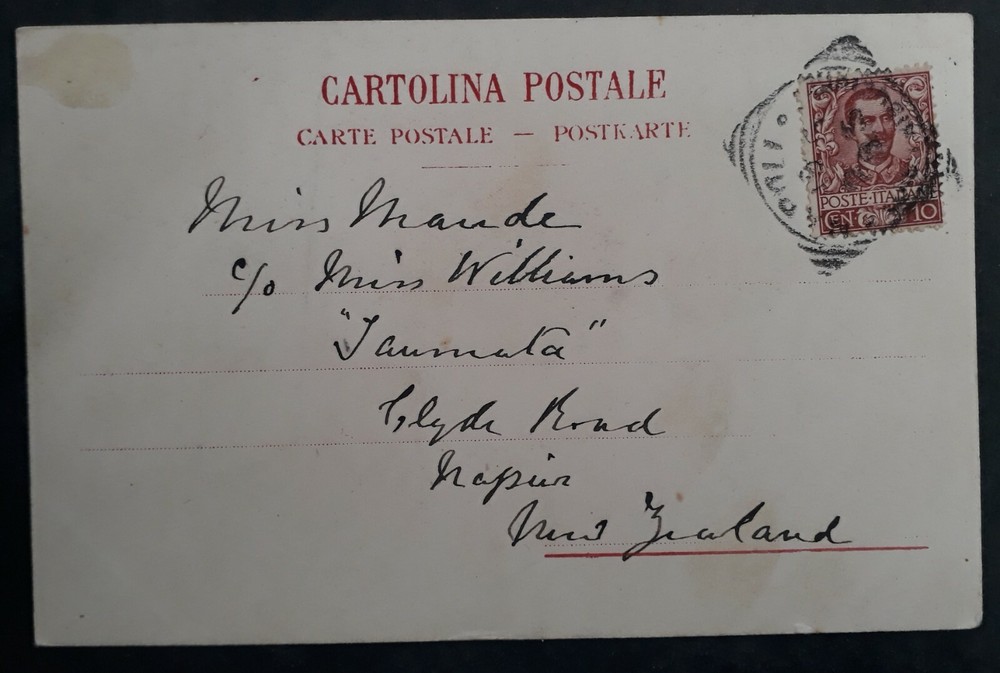 CARTOLINA POSTALE
CARTE POSTALE — POSTKARTE
POSTE·ITALIANE
CENT 10
Miss Maude
c/o Miss Williams
"Taumata"
Clyde Road
Napier
New Zealand